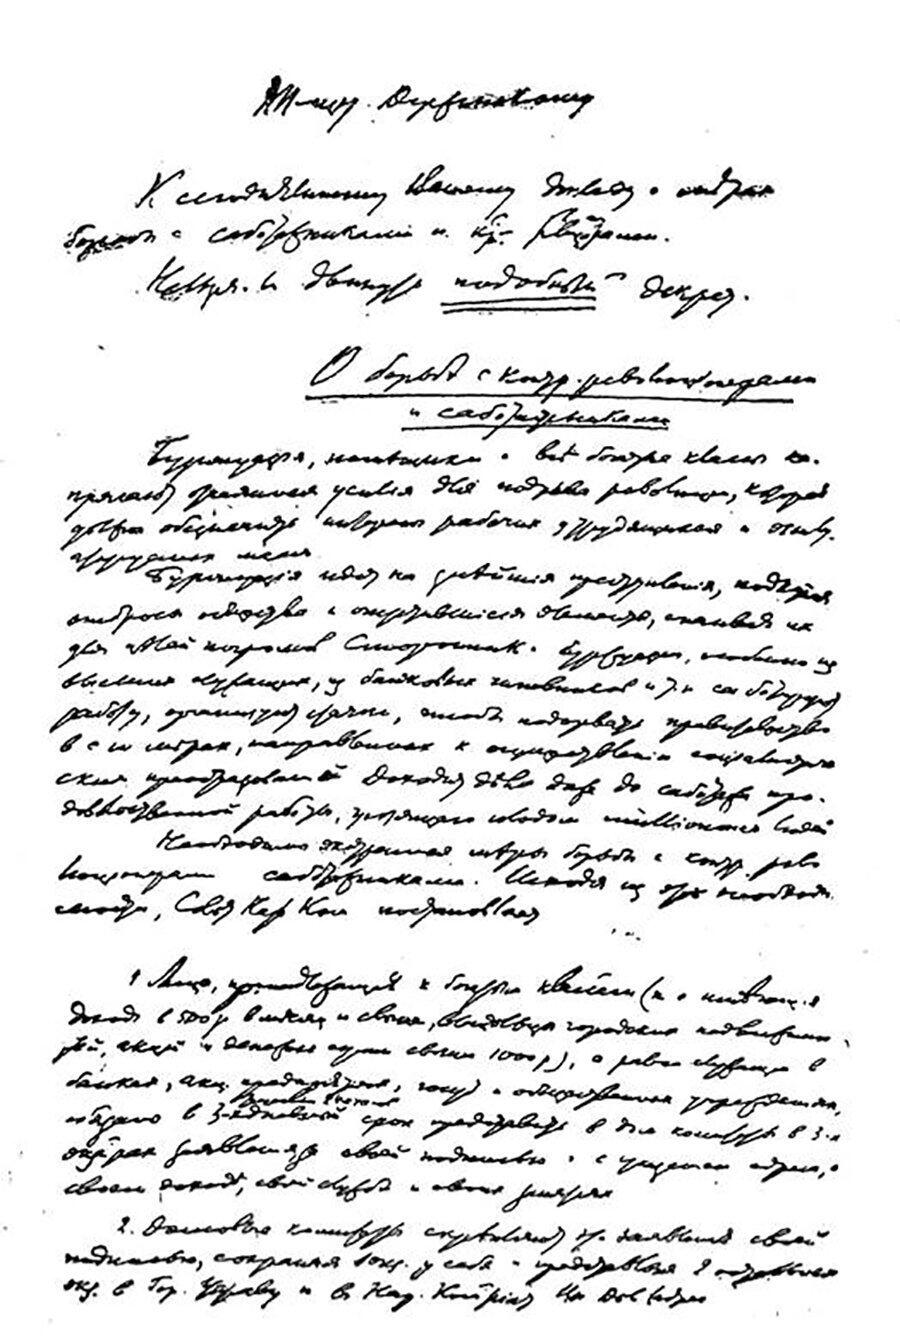 К сегодняшнему Вашему докладу о мерах
борьбы с саботажниками и к.-р.
Нельзя ли двинуть подобный декрет.
О борьбе с контр.-революционерами
и саботажниками
Буржуазія, помещики и все богатые классы на-
прягают отчаянные усилия для подрыва революции, которая
должна обеспечить интересы рабочих, трудящихся и эксплу-
масс.
Буржуазія идет на злейшія преступления, подкупая
отбросы общества и опустившіеся элементы, спаивая их
для целей погромов. Сторонники буржуазии, особенно из
высших служащих, из банковых чиновников и т. п. саботируют
работу, организуют стачки, чтобы подорвать правительство
в его мерах, направленных к осуществлению социалистиче-
ских преобразований. Доходит дело даже до саботажа про-
довольственной работы, грозящего голодом миллионам людей
Необходимы экстренные меры борьбы с контр.-рево
люционерами саботажниками. Исходя из этой необходи-
мости, Совет Нар Ком постановляет
1 Лица, принадлежащие к богатым классам (т. е. имеющие
доход в 500 р в месяц и свыше, владельцы городских недвижимо-
стей, акций и денежных сумм свыше 1000 р), а равно служащие в
банках, акц. предприятиях, госуд и общественных учреждениях,
обязаны в 3-хдневный срок представить в дом комитеты в 3-х
экз заявления за своей подписью и с указанием адреса, о
своем доходе, своей службе и своих занятиях
2. Домовые комитеты скрепляют эти заявления своей
подписью, сохраняя 1 экз. у себя и представляя 2 остальные
экз. в Гор. Управу и в Нар. Комис Вн Дел